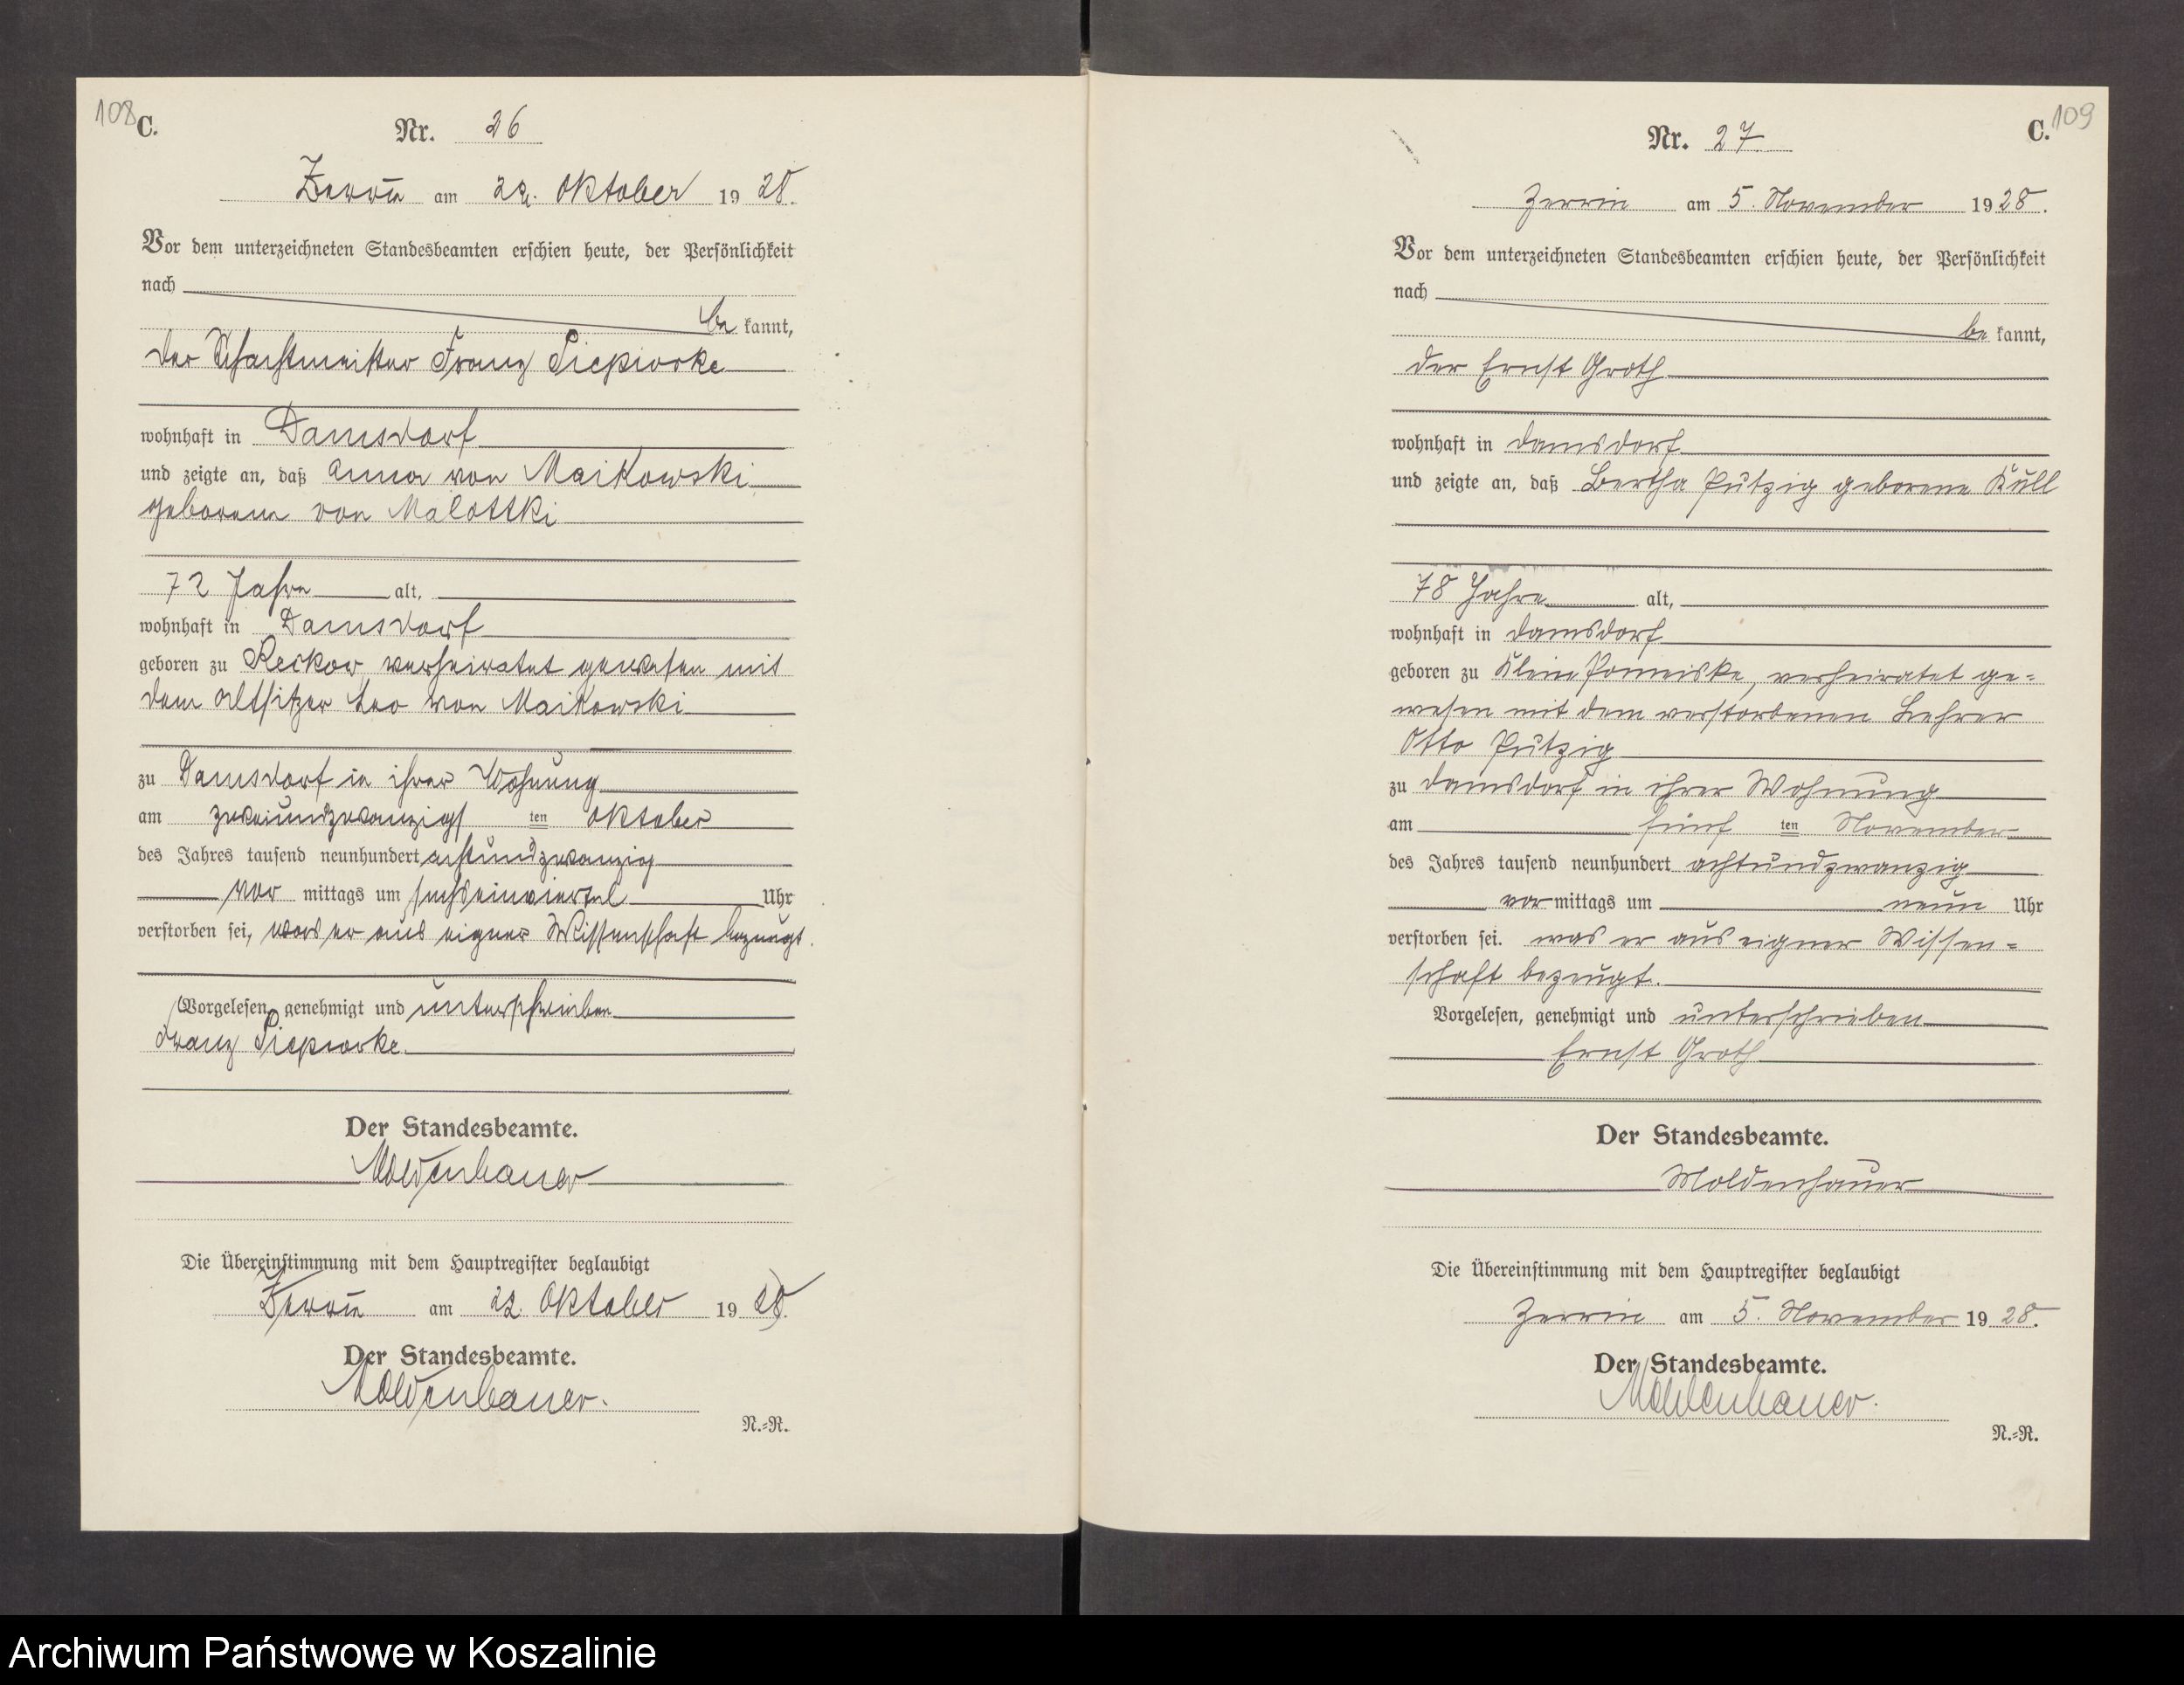 108
C.
Nr. 26
Zerrin am 22. Oktober 1928.
Vor dem unterzeichneten Standesbeamten erschien heute, der Persönlichkeit
nach
be kannt,
der Schachtmeister Franz Piepiorke
wohnhaft in Damsdorf
und zeigte an, daß Anna von Maikowski
geborene von Malottki
72 Jahre alt,
wohnhaft in Damsdorf
geboren zu Reckow, verheiratet gewesen mit
dem Altsitzer Leo von Maikowski
zu Damsdorf in ihrer Wohnung
am zweiundzwanzigs ten Oktober
des Jahres tausend neunhundert achtundzwanzig
vor mittags um sechseinviertel Uhr
verstorben sei, was er aus eigner Wissenschaft bezeugt.
Vorgelesen, genehmigt und unterschrieben
Franz Piepiorke.
Der Standesbeamte.
Moldenhauer
Die Übereinstimmung mit dem Hauptregister beglaubigt
Zerrin am 22. Oktober 1928.
Der Standesbeamte.
Moldenhauer.
N.=R.
109
C.
Nr. 27
Zerrin am 5. November 1928.
Vor dem unterzeichneten Standesbeamten erschien heute, der Persönlichkeit
nach
be kannt,
der Ernst Groth
wohnhaft in Damsdorf
und zeigte an, daß Bertha Putzig geborene Küll
78 Jahre alt,
wohnhaft in Damsdorf
geboren zu Klein Pomeiske, verheiratet ge=
wesen mit dem verstorbenen Lehrer
Otto Putzig
zu Damsdorf in ihrer Wohnung
am fünf ten November
des Jahres tausend neunhundert achtundzwanzig
vor mittags um neun Uhr
verstorben sei. was er aus eigner Wissen=
schaft bezeugt.
Vorgelesen, genehmigt und unterschrieben
Ernst Groth
Der Standesbeamte.
Moldenhauer
Die Übereinstimmung mit dem Hauptregister beglaubigt
Zerrin am 5. November 1928.
Der Standesbeamte.
Moldenhauer.
N.=R.
Archiwum Państwowe w Koszalinie